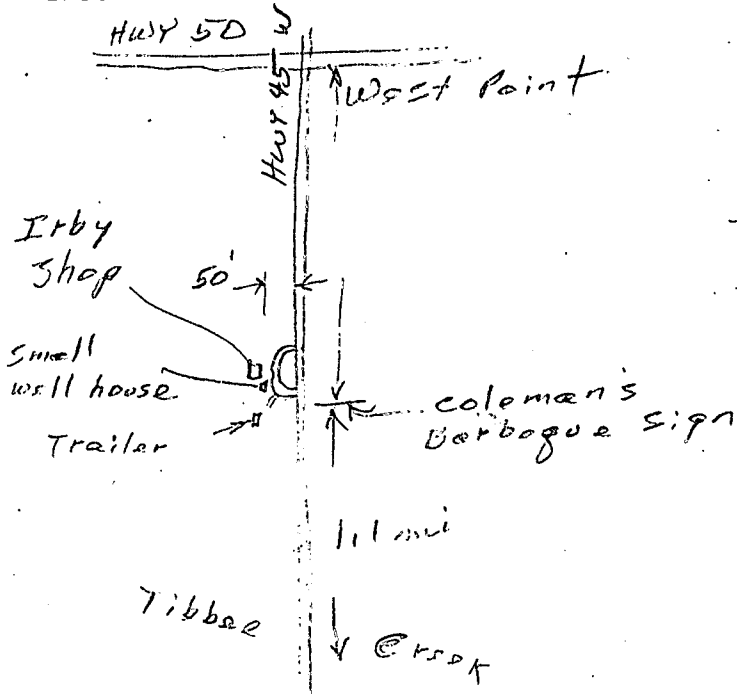 HWY 50
HWY 45 W
West Point
Irby
Shop
50'
Small
well house
Coleman's
Barbaque Sign
Trailer
1.1 mi
Tibbee
Creek